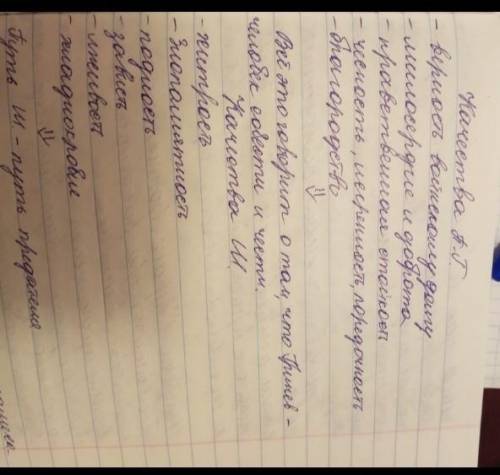 Качества П.Г
- верность воинскому долгу
- милосердие и доброта
- нравственная стойкость
- чесность, искренность, порядочность
- благородство
⇓
Всё это говорит о том, что Гринев -
человек совести и чести.
Качества Ш
- хитрость
- злопамятность
- подлость
- зависть
- лживость
- хладнокровие
⇓
Путь Ш - путь предателя